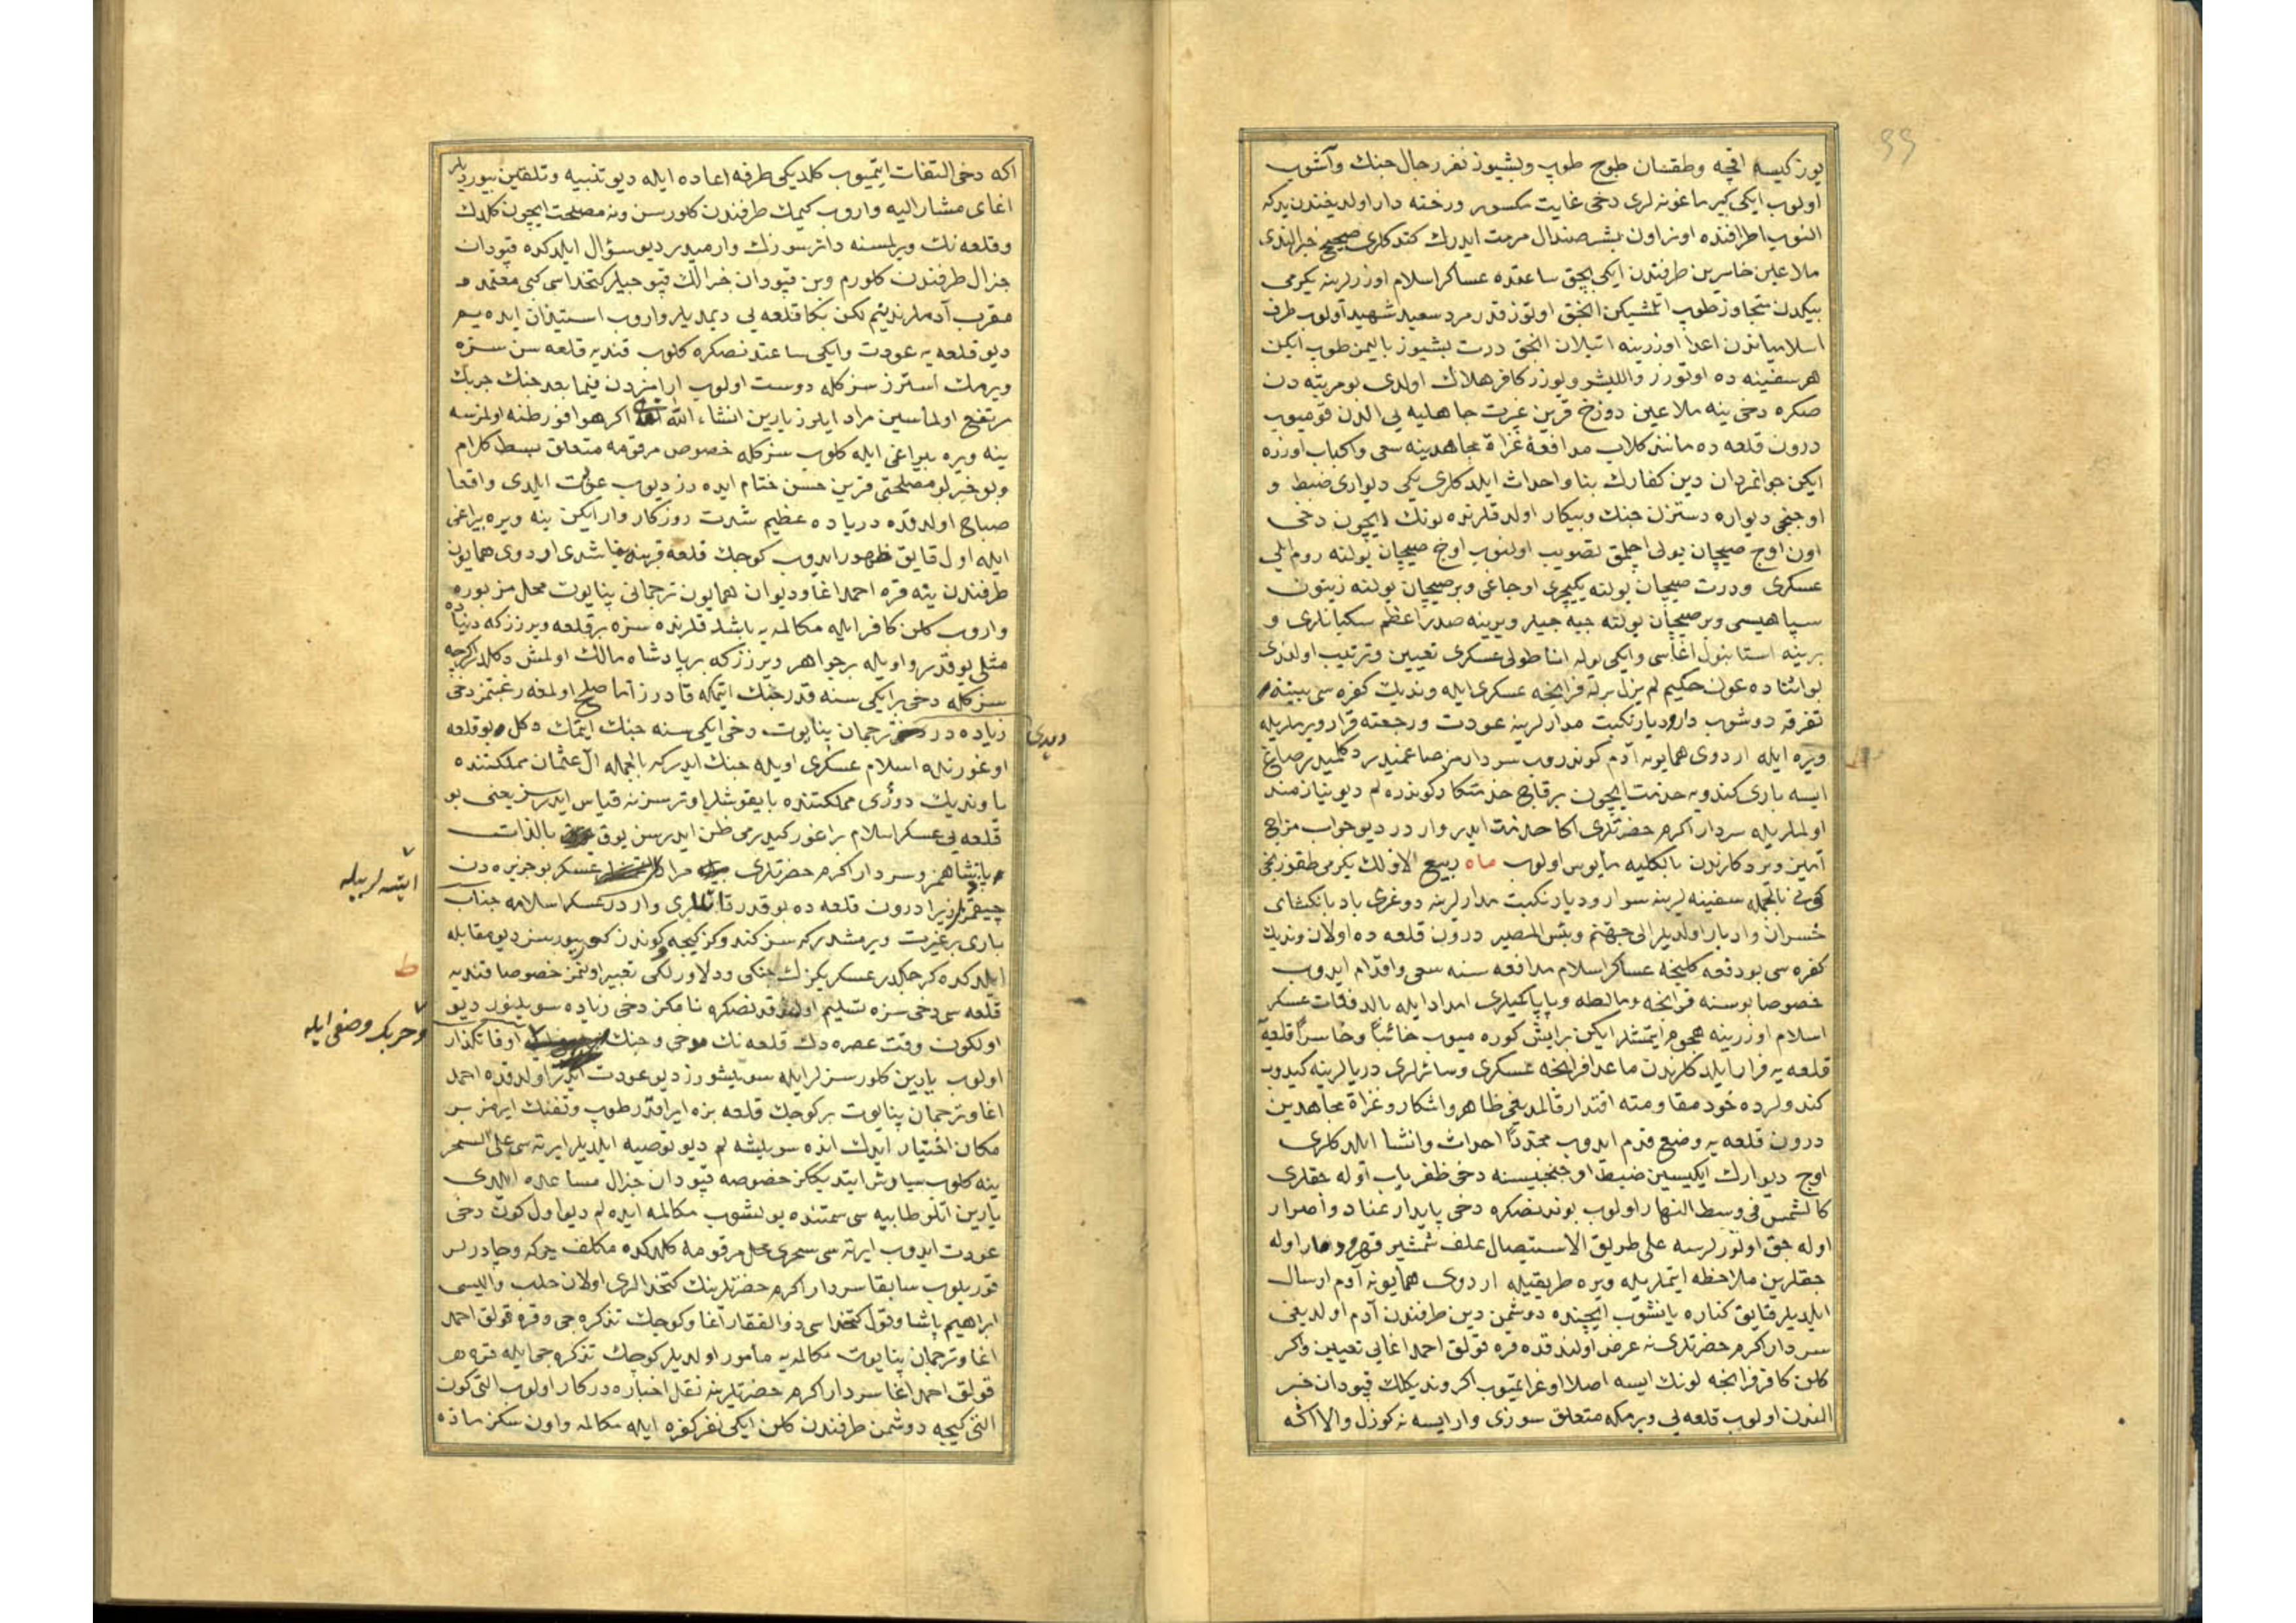 یوز کیسه اقچه وطقسان طوج طوپ وبشیوز نفر رجال جنك وآشوب
اولوب ایکی کبیر ماغونه لری دخی غایت مکسور ورخنه دار اولدیغندن یدکه
النوب اطرافنده اوتر اون بشر صندال مرمت ایدرك کتدکلری صحیح خبر الندی
ملاعین خاسرین طرفندن ایکی بچق ساعتده عساکر اسلام اوزرلرینه یکرمی
بیکدن متجاوز طوپ اتلمشیکن انجق اوتوز قدر مرد سعید شهید اولوب طرف
اسلامیاندن اعدا اوزرینه اتیلان انجق درت بشیوز بالیمز طوپ ایکن
هر سفینه ده اوتوزر واللیشر ویوزر کافر هلاك اولدی بو مرتبه دن
صکره دخی ینه ملاعین دوزخ قرین غیرت جاهلیه یی الدن قومیوب
درون قلعه ده مانند کلاب مدافعهٔ غزاة مجاهدینه سعی واکباب اوزره
ایکن جوانمردان دین کفارك بنا واحداث ایلدکلری یکی دیواری ضبط و
اوچنجی دیواره دستزن جنك وپیکار اولدقلرنده بونك ایچون دخی
اون اوچ صیچان یولی اچلمق تصویب اولنوب اوچ صیچان یولنه روم ایلی
عسکری ودرت صیچان یولنه یکیچری اوجاغی وبر صیچان یولنه زیتون
سپاهیسی وبر صیچان یولنه جبه جیلر وبرینه صدر اعظم سکبانلری و
برینه استانبول اغاسی وایکی یوله اناطولی عسکری تعیین وترتیب اولندی
بو اثناده عون حکیم لم یزل برله فرانچه عسکری ایله وندیك کفره سی بیننه
تفرقه دوشوب دار ودیار نکبت مدارلرینه عودت ورجعته قرار ویرملریله
ویره ایله اردوی همایونه آدم کوندروب سردارمز صاغمیدر دکلمیدر صاغ
ایسه باری کندویه خدمت ایچون برقاچ خدمتکار کوندره لم دیو نیازمند
اولملریله سردار اکرم حضرتلری اکا خدمت ایدر وار در دیو جواب مزاح
آمیز ویردکلرندن بالکلیه مأیوس اولوب ماه ربیع الاولك یکرمی طقوزنجی
کونی بالجمله سفینه لرینه سوار ودیار نکبت مدارلرینه دوغری بادبانکشای
خسران وادبار اولدیلر الی جهنم وبئس المصیر درون قلعه ده اولان وندیك
کفره سی بو دفعه کلنجه عساکر اسلام مدافعه سنه سعی واقدام ایدوب
خصوصا بو سنه فرانچه ومالطه وپاپا کمیلری امداد ایله بالدفعات عسکر
اسلام اوزرینه هجوم ایتمشلر ایکن بر ایش کوره میوب خائبا وخاسرا قلعه
قلعه یه فرار ایلدکلرندن ماعدا فرانچه عسکری وسائرلری دریالرینه کیدوب
کندولرده خود مقاومته اقتدار قالمدیغی ظاهر واشکار وغزاة مجاهدین
درون قلعه یه وضع قدم ایدوب مجددا احداث وانشا ایلدکلری
اوچ دیوارك ایکیسین ضبط اوچنجیسنه دخی ظفریاب اوله جقلری
کالشمس فی وسط النهار اولوب بوندنصکره دخی پایدار عناد واصرار
اوله جق اولورلرسه علی طریق الاستیصال علف شمشیر قهر ودمار اوله
جقلرین ملاحظه ایتملریله ویره طریقیله اردوی همایونه آدم ارسال
ایلدیلر قایق کناره یانشوب ایچنده دوشمن دین طرفندن آدم اولدیغی
سردار اکرم حضرتلرینه عرض اولندقده قره قولاق احمد اغایی تعیین واکر
کلن کافر فرانچه لونك ایسه اصلا اوغراتمیوب اکر وندیکلك قپودان خبر
الندن اولوب قلعه یی ویرمکه متعلق سوزی وار ایسه نه کوزل والا اکه
اکه دخی التفات ایتمیوب کلدیکی طرفه اعاده ایله دیو تنبیه وتلقین بیوردیلر
اغای مشار الیه واروب کیمك طرفندن کلورسن ونه مصلحت ایچون کلدك
وقلعه نك ویرلمسنه دائر سوزك وارمیدر دیو سؤال ایلدکده قپودان
جنرال طرفندن کلورم وبن قپودان جنرالك قپوجیلر کتخداسی کبی معتمد و
مقرب آدملرندنیم لکن بکا قلعه یی دیمدیلر واروب استیذان ایده یم
دیو قلعه یه عودت وایکی ساعتدنصکره کلوب قندیه قلعه سن سزه
ویرمك استرز سزکله دوست اولوب ارامزدن فیما بعد جنك جربك
مرتفع اولماسین مراد ایلرز یارین انشاء الله تعالی اکر هوا فورطنه اولمزسه
ینه ویره بیراغی ایله کلوب سزکله خصوص مرقومه متعلق بسط کلام
وبو خیرلو مصلحتی قرین حسن ختام ایده رز دیوب عودت ایلدی واقعا
صباح اولدقده دریاده عظیم شدت روزکار وار ایکن ینه ویره بیراغی
ایله اول قایق ظهور ایدوب کوچك قلعه قربنه یناشدی اردوی همایون
طرفندن ینه قره احمد اغا ودیوان همایون ترجمانی پنایوت محل مزبوره
واروب کلن کافر ایله مکالمه یه باشلدقلرنده سزه بر قلعه ویررز که دنیاده
مثلی یوقدر واویله بر جواهر ویررز که بر پادشاه مالك اولمش دکلدر اکرچه
سزکله دخی بر ایکی سنه قدر جنك ایتمکه قادرز اما صلح اولمغه رغبتمز دخی
زیاده در ترجمان پنایوت دخی ایکی سنه جنك ایتمك دکل بو قلعه
دیدی
اوغورنده اسلام عسکری اویله جنك ایدر که بالجمله آل عثمان مملکتنده
یا وندیك دوژی مملکتنده بایقوشلر اوتر سز نه قیاس ایدرسز یعنی بو
قلعه یی عسکر اسلام براغور کیدرمی ظن ایدرسن یوق بالذات
پادشاهمز وسردار اکرم حضرتلری مراد عسکر بو جزیره دن
ایتسه لر بیله
چیقمزلر زیرا درون قلعه ده بو قدر قانلری وار در عسکر اسلامه جناب
باری بر غیرت ویرمشدر که سز کندوکز کیجه وکوندن کورییورسز دیو مقابله
ط
ایلدکده کرچکدر عسکریکزك جنکی ودلاورلکی تعبیر اولنمز خصوصا قندیه
قلعه سی دخی سزه تسلیم اولندقدنصکره نامکز دخی زیاده سویلنور دیو
اولکون وقت عصره دك قلعه نك مدحی وجنك اوقاتکذار
وحربك وصفی ایله
اولوب یارین کلورسز لر ایله سویلشورز دیو عودت ایدر اولدقده احمد
اغا وترجمان پنایوت بر کوچك قلعه بزه ایراقدر طوپ وتفنك ایرمز بر
مکان اختیار ایدك انده سویلشه لم دیو توصیه ایلدیلر ایرته سی علی السحر
ینه کلوب سپارش ایتدیککز خصوصه قپودان جنرال مساعده ایلدی
یارین اتلو طابیه سی سمتنده بولشوب مکالمه ایده لم دیو اول کون دخی
عودت ایدوب ایرته سی سحری محل مرقومه کلدکده مکلف چرکه وچادرلر
قوریلوب سابقا سردار اکرم حضرتلرینك کتخدالری اولان حلب والیسی
ابراهیم پاشا وقول کتخداسی ذوالفقار آغا وکوچك تذکره جی وقره قولاق احمد
اغا وترجمان پنایوت مکالمه یه مأمور اولدیلر کوچك تذکره جی ایله قره
قولاق احمد اغا سردار اکرم حضرتلرینه نقل اخباره درکار اولوب التی کون
التی کیجه دوشمن طرفندن کلن ایکی نفر کفره ایله مکالمه واون سکز ماده